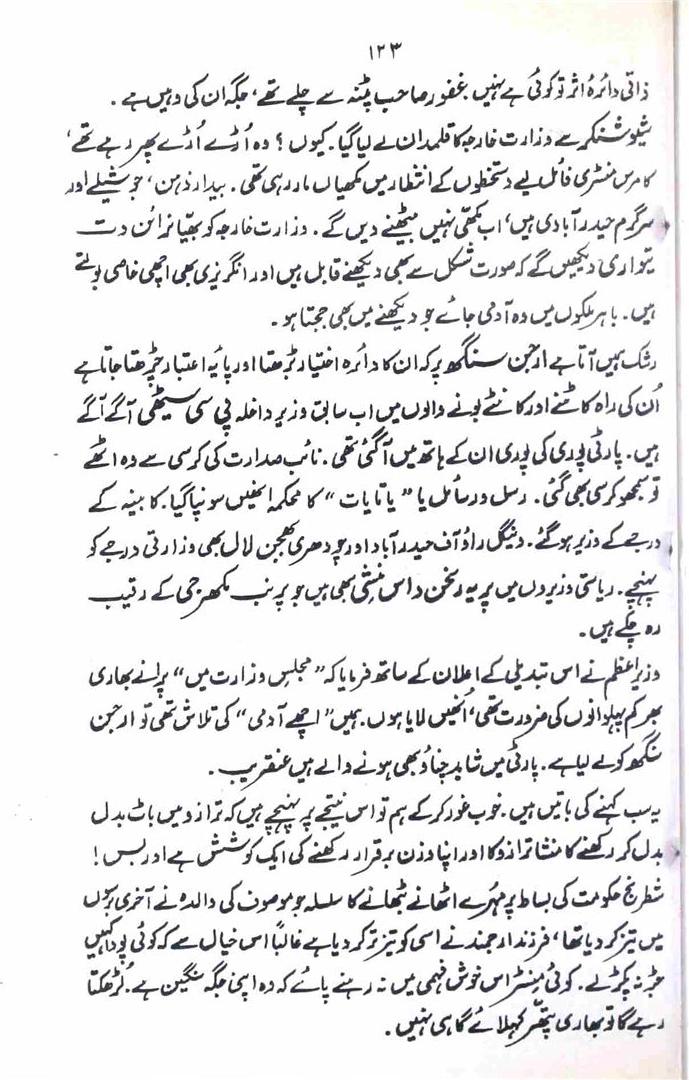 ۱۲۳
ذاتی دائرہ اثر تو کوئی ہے نہیں۔ غفور صاحب پٹنہ سے چلے تھے، جگہ ان کی وہیں ہے۔
شیو شنکر سے وزارت خارجہ کا قلمدان لے لیا گیا۔ کیوں؟ وہ اُڑے اُڑے پھر رہے تھے،
کامرس منسٹری فائل لیے دستخطوں کے انتظار میں مکھیاں مار رہی تھی۔ بیدار ذہن، جوشیلے اور
سرگرم حیدرآبادی ہیں، اب مکھی نہیں بیٹھنے دیں گے۔ وزارت خارجہ کو بھیّا نرائن دت
تیواری دیکھیں گے کہ صورت شکل سے بھی دیکھنے قابل ہیں اور انگریزی بھی اچھی خاصی بولتے
ہیں۔ باہر ملکوں میں وہ آدمی جائے جو دیکھنے میں بھی جچتا ہو۔
رشک ہمیں آتا ہے ارجن سنگھ پر کہ ان کا دائرہ اختیار بڑھتا اور پایہ اعتبار چڑھتا جاتا ہے
اُن کی راہ کاٹنے اور کانٹے بونے والوں میں اب سابق وزیر داخلہ پی سی سیٹھی آگے آگے
ہیں۔ پارٹی پوری کی پوری ان کے ہاتھ میں آگئی تھی۔ نائب صدارت کی کرسی سے وہ اٹھے
تو سمجھو کرسی بھی گئی۔ رسل و رسائل یا ”یاتایات“ کا محکمہ انھیں سونپا گیا۔ کابینہ کے
درجے کے وزیر ہو گئے۔ وینگل راؤ آف حیدرآباد اور چودھری بھجن لال بھی وزارتی درجے کو
پہنچے۔ ریاستی وزیروں میں پریہ رنجن داس منشی بھی ہیں جو پرنب مکھرجی کے رقیب
رہ چکے ہیں۔
وزیر اعظم نے اس تبدیلی کے اعلان کے ساتھ فرمایا کہ ”مجلس وزارت میں“ پرانے بھاری
بھرکم پہلوانوں کی ضرورت تھی، اُنھیں لایا ہوں۔ ہمیں ”اچھے آدمی“ کی تلاش تھی تو ارجن
سنگھ کو لے لیا ہے۔ پارٹی میں شاید چناؤ بھی ہونے والے ہیں عنقریب۔
یہ سب کہنے کی باتیں ہیں۔ خوب غور کر کے ہم تو اس نتیجے پر پہنچے ہیں کہ ترازو میں باٹ بدل
بدل کر رکھنے کا منشا ترازو کا اور اپنا وزن برقرار رکھنے کی ایک کوشش ہے اور بس!
شطرنج حکومت کی بساط پر مہُرے اٹھانے بٹھانے کا سلسلہ جو موصوف کی والدہ نے آخری برسوں
میں تیز کر دیا تھا، فرزند ارجمند نے اسی کو تیز تر کر دیا ہے غالباً اس خیال سے کہ کوئی پودا کہیں
جڑ نہ پکڑ لے۔ کوئی منسٹر اس خوش فہمی میں نہ رہنے پائے کہ وہ اپنی جگہ سنگین ہے۔ لُڑھکتا
رہے گا تو بھاری پتھّر کہلائے گا ہی نہیں۔